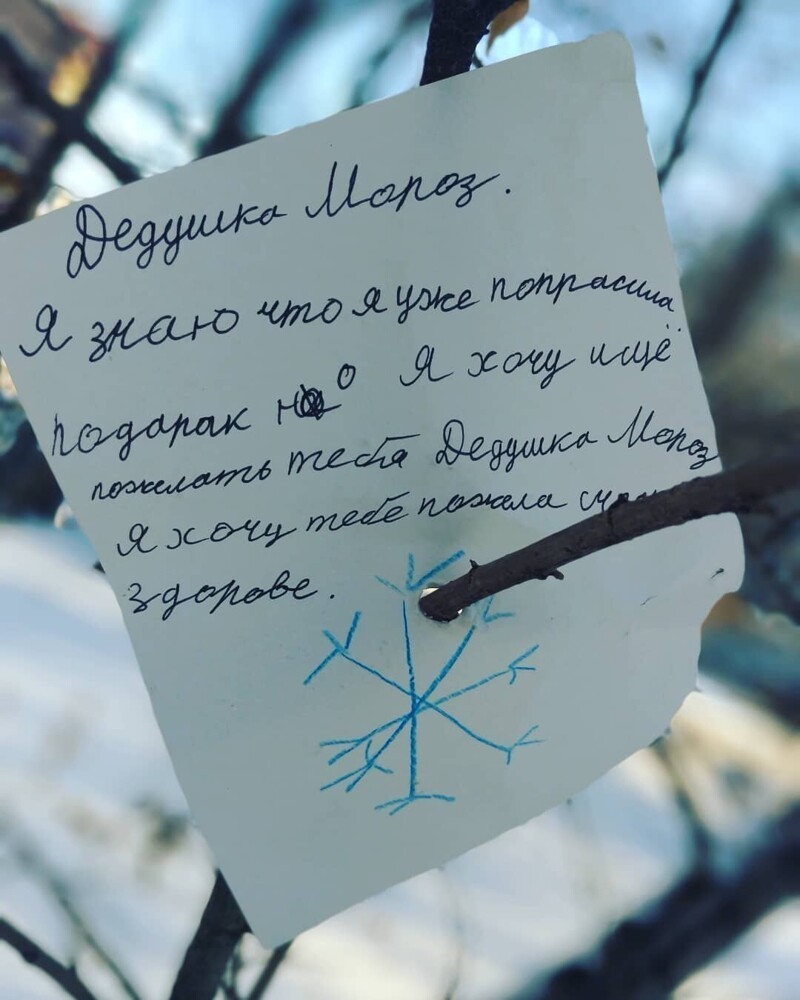 Дедушка Мороз.
Я знаю что я уже попрасила
подарак но Я хочу ищё
пожелать тебя Дедушка Мороз
я хочу тебе пожела
здорове.